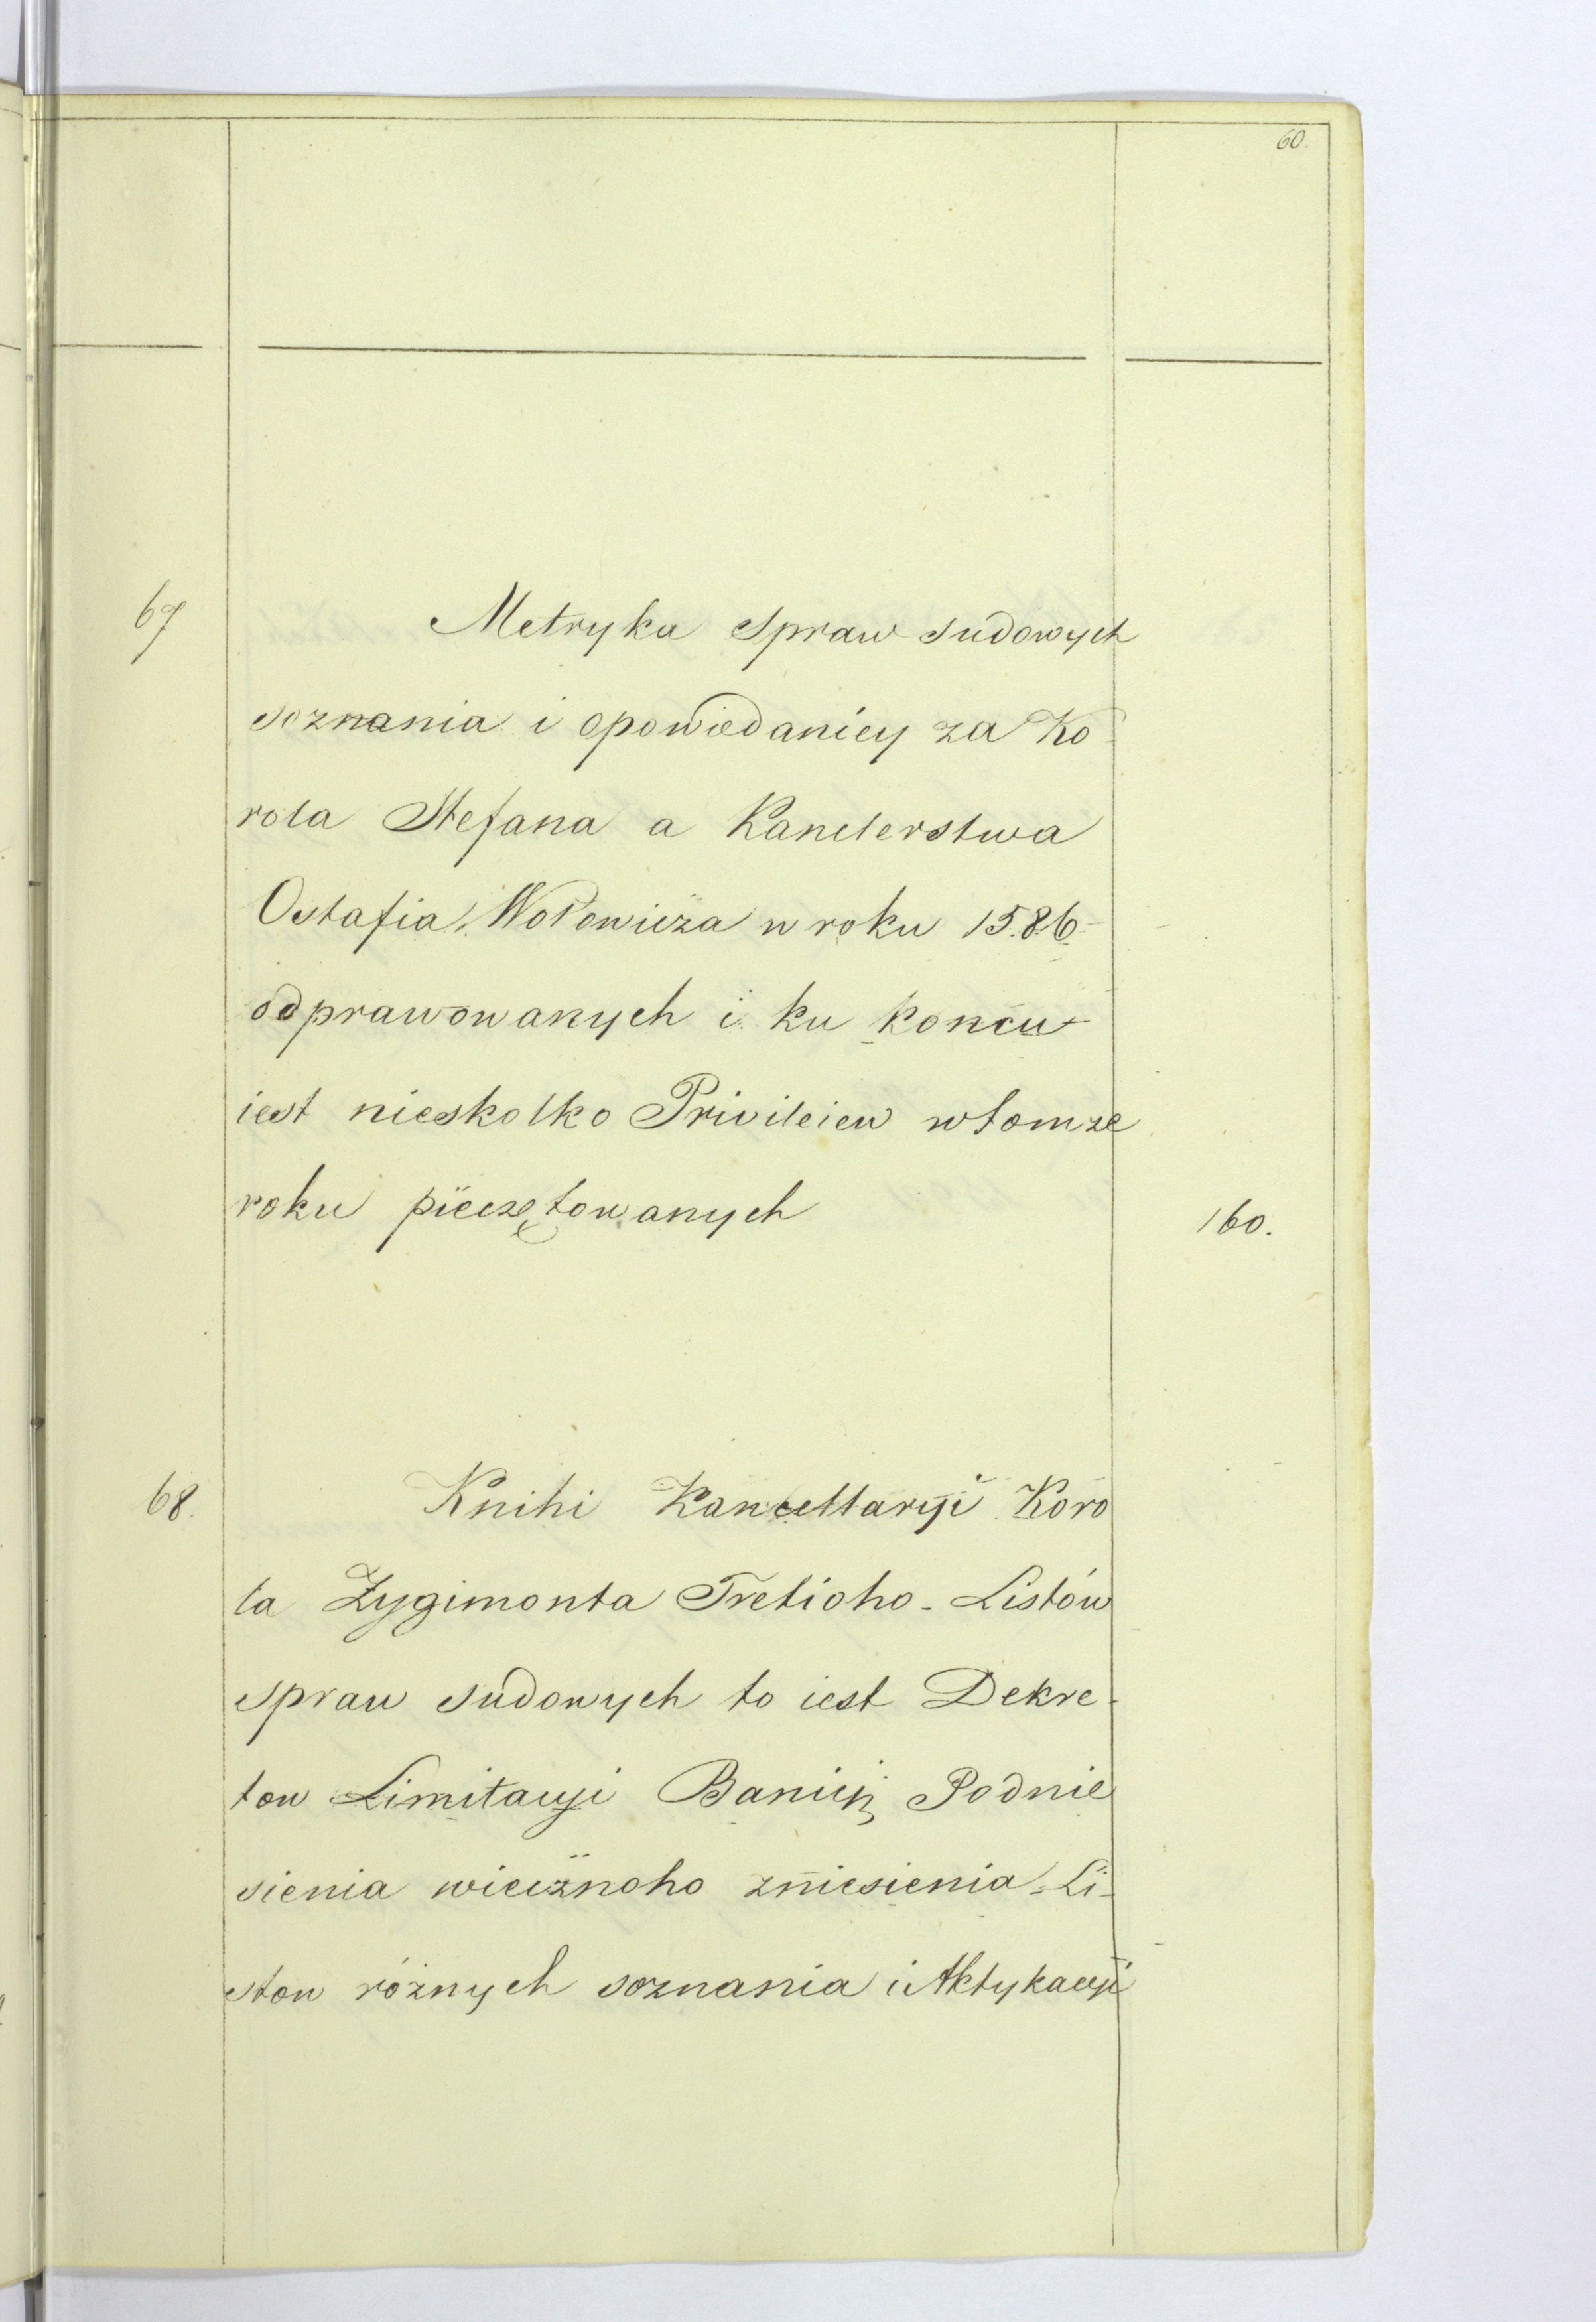 60.
67 Metryka Spraw sudowych
soznania i opowiedaniey za Ko
rola Stefana a Kanclerstwa
Ostafia Wołowiża w roku 1586
odprawowanych i ku końcu
iest nieskolko Privileiew w tomże
roku pieczętowanych 160.
68. Knihi Kancellaryi Koro
la Zygimonta Tretioho - Listów
spraw sudowych to iest Dekre-
tow Limitacyi Banicji Podnie
sienia wieczńoho zniesienia - Li-
stow różnych soznania i Aktykacyi